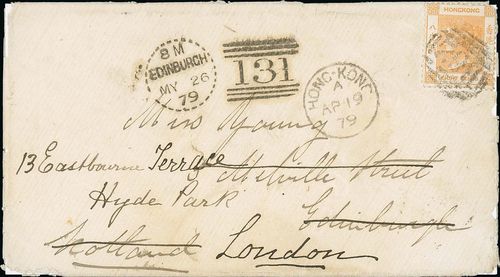 HONGKONG
8 M
EDINBURGH
MY 26
79
131
HONG-KONG
A
AP 19
79
Miss Young
13 Eastbourne Terrace Melville Street
Hyde Park Edinburgh
Scotland London